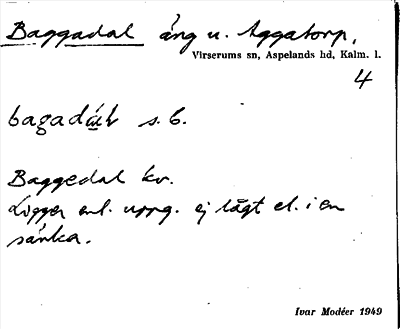 Baggadal äng u. Aggatorp,
Virserums sn, Aspelands hd, Kalm. l.
4
bagadal s. b.
Baggedal kv.
Ligger enl. uppg. ej lågt el. i en
sänka.
Ivar Modéer 1949